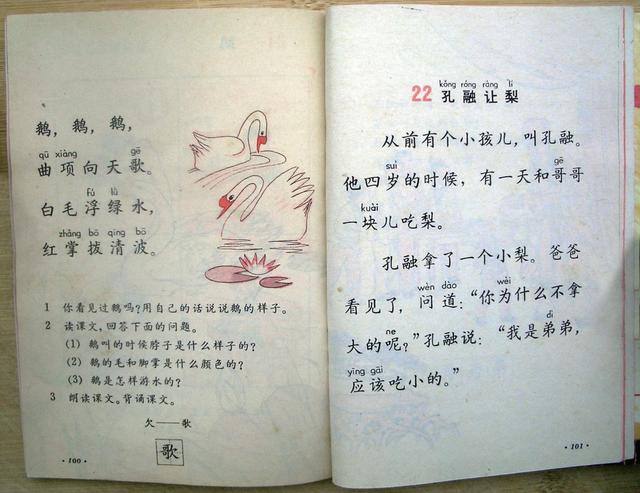 鹅，鹅，鹅，
qū xiàng gē
曲项向天歌。
fú lǜ
白毛浮绿水，
zhǎng bō qīng bō
红掌拨清波。
1 你看见过鹅吗？用自己的话说说鹅的样子。
2 读课文，回答下面的问题。
(1) 鹅叫的时候脖子是什么样子的？
(2) 鹅的毛和脚掌是什么颜色的？
(3) 鹅是怎样游水的？
3 朗读课文。背诵课文。
欠——歌
歌
·100·
kǒng róng ràng lí
22 孔融让梨
从前有个小孩儿，叫孔融。
suì gē
他四岁的时候，有一天和哥哥
kuài
一块儿吃梨。
孔融拿了一个小梨。爸爸
wèn dào wèi
看见了，问道：“你为什么不拿
ne dì
大的呢？”孔融说：“我是弟弟，
yīng gāi
应该吃小的。”
·101·